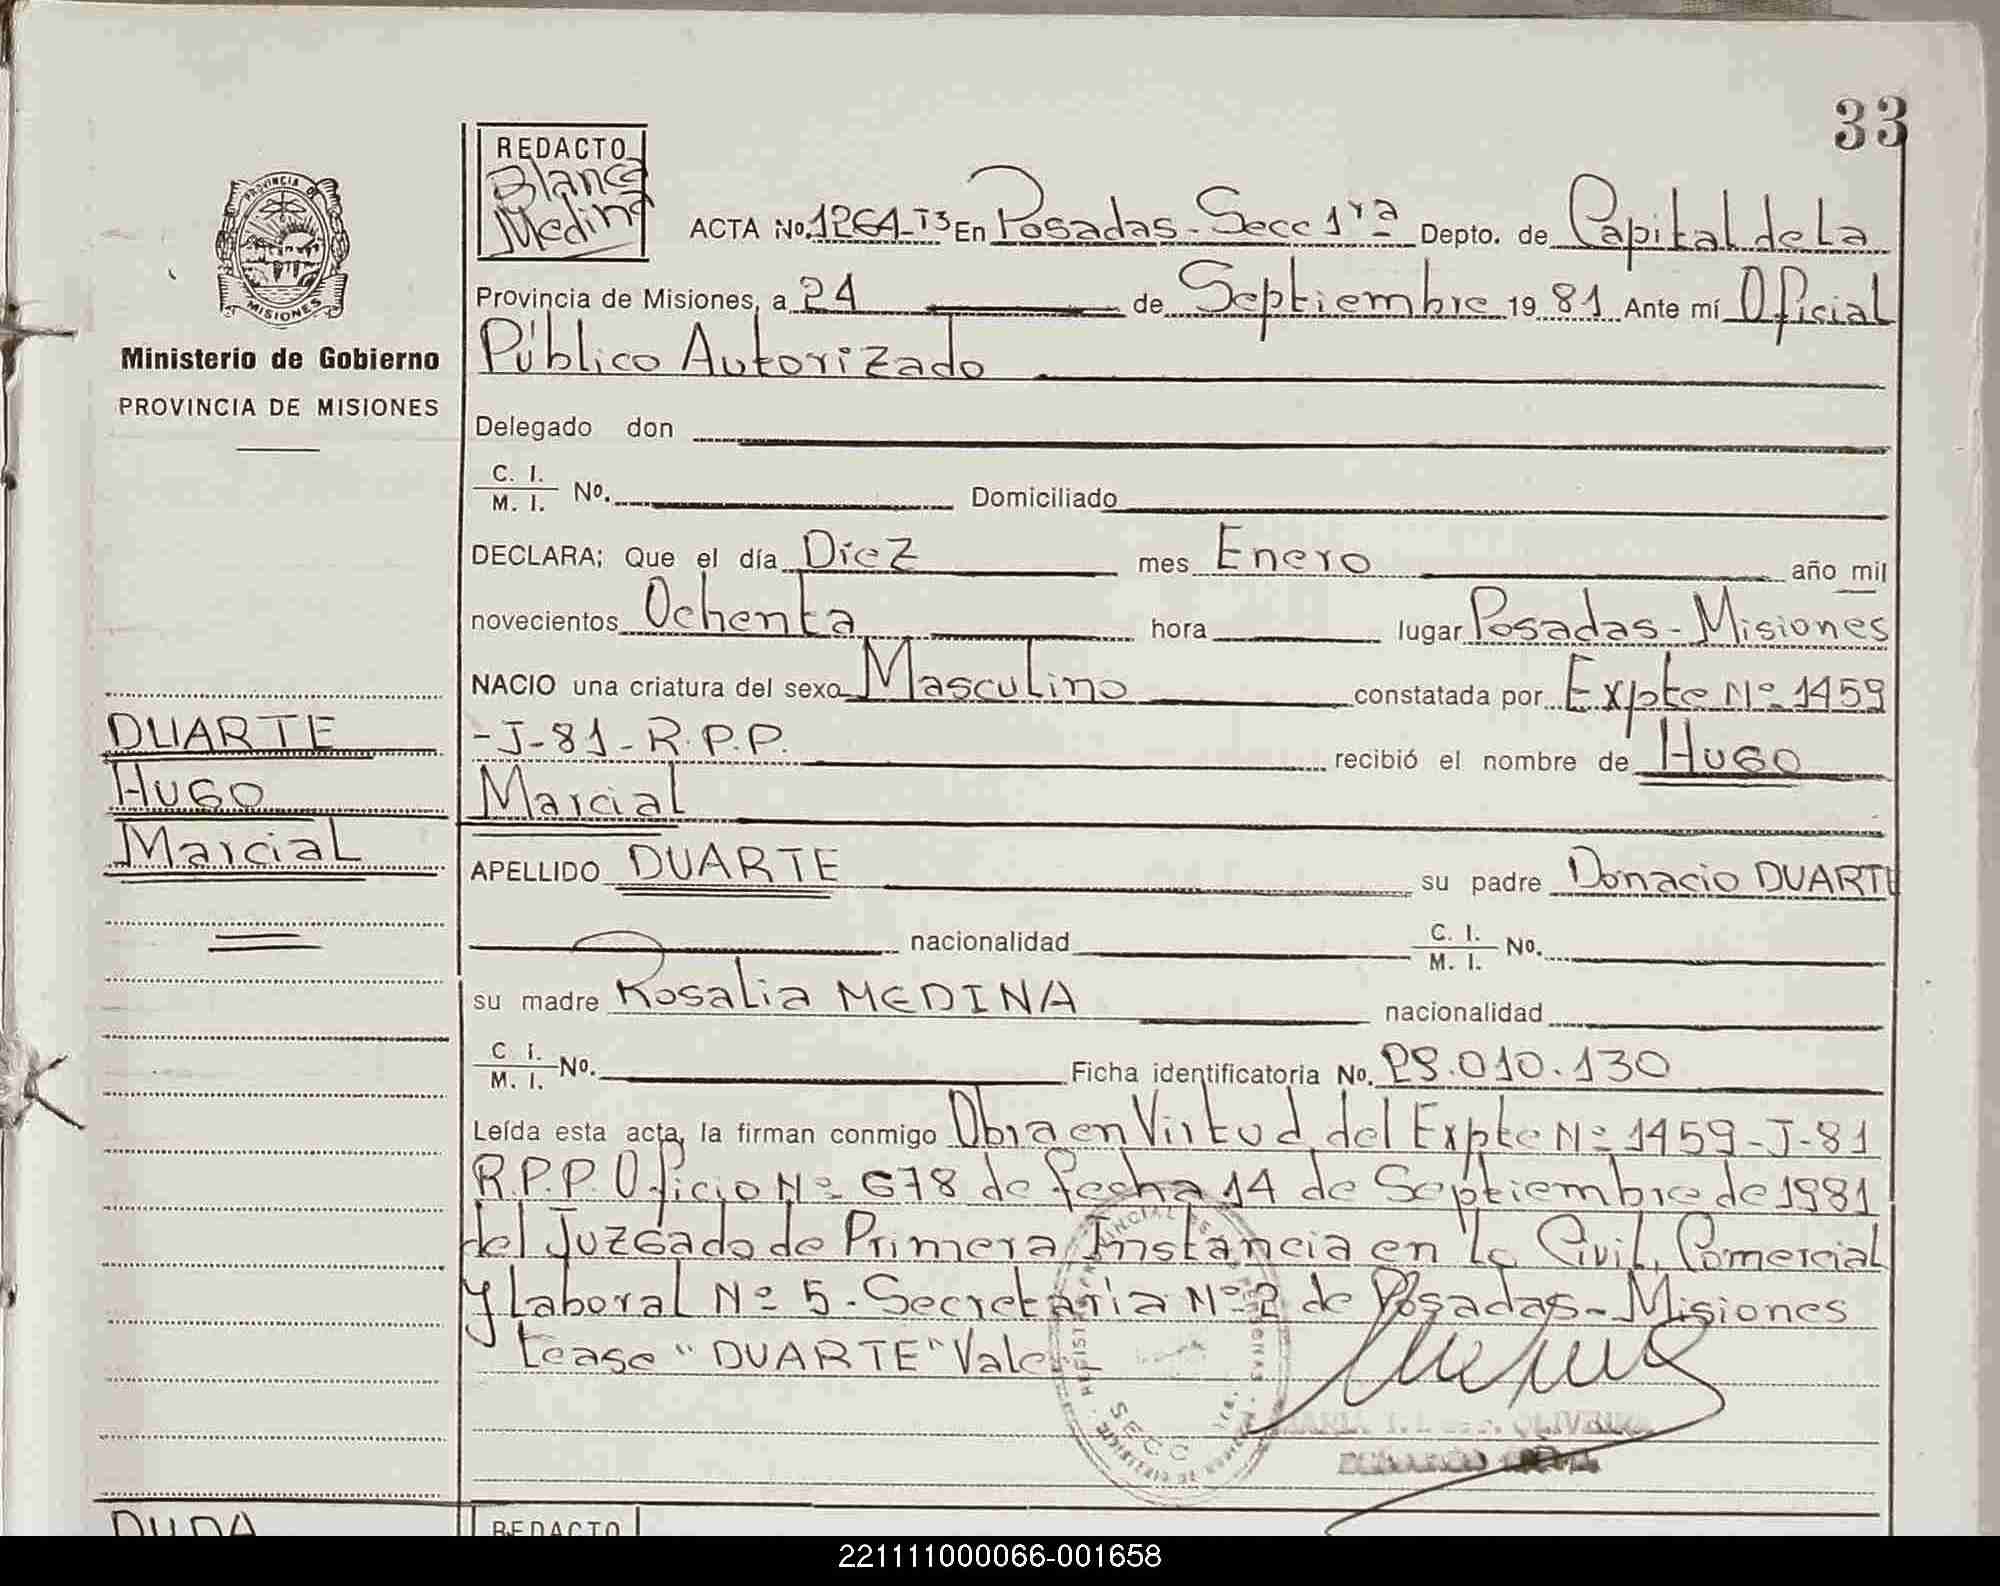 33
REDACTO
Blanca
Medina
PROVINCIA DE
MISIONES
Ministerio de Gobierno
PROVINCIA DE MISIONES
ACTA No. 1264-T3 En Posadas - Secc 1ra Depto. de Capital de La
Provincia de Misiones, a 24 de Septiembre 19 81 Ante mí Oficial
Público Autorizado
Delegado don
C. I.
M. I. No. Domiciliado
DECLARA; Que el día Diez mes Enero año mil
novecientos Ochenta hora lugar Posadas - Misiones
NACIO una criatura del sexo Masculino constatada por Expte Nº 1459
-J-81-R.P.P. recibió el nombre de Hugo
Marcial
DUARTE
Hugo
Marcial
APELLIDO DUARTE su padre Donacio DUARTE
nacionalidad C. I.
M. I. No.
su madre Rosalia MEDINA nacionalidad
C. I.
M. I. No. Ficha identificatoria No. 29.010.130
Leída esta acta, la firman conmigo Obra en Virtud del Expte Nº 1459-J-81
R.P.P. Oficio Nº 678 de fecha 14 de Septiembre de 1981
del Juzgado de Primera Instancia en lo Civil, Comercial
y Laboral Nº 5 - Secretaria Nº 2 de Posadas - Misiones
Lease "DUARTE" Vale
SECC
REDACTO
221111000066-001658